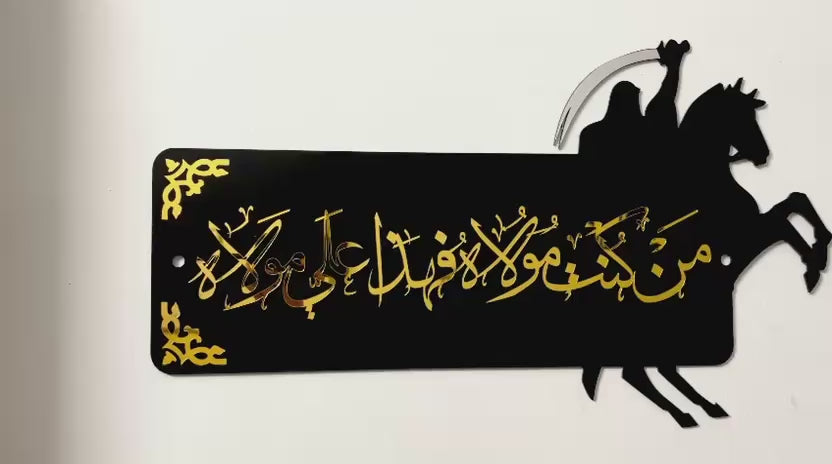 مَن كُنت مُولَاه فُهذا علي مولَاه